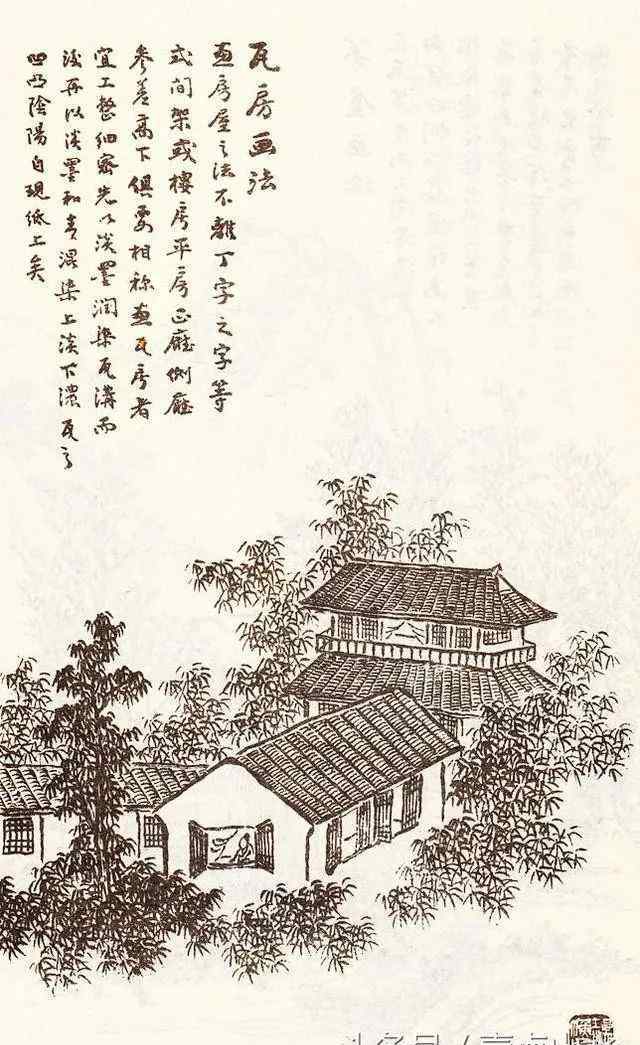 瓦房画法
画房屋之法不離丁字之字等
式间架或樓房平房正廳側廳
参差高下俱要相称画瓦房者
宜工整细密先以淡墨润染瓦溝而
後再以淡墨和青混染上淡下濃瓦之
凹凸陰陽自現紙上矣